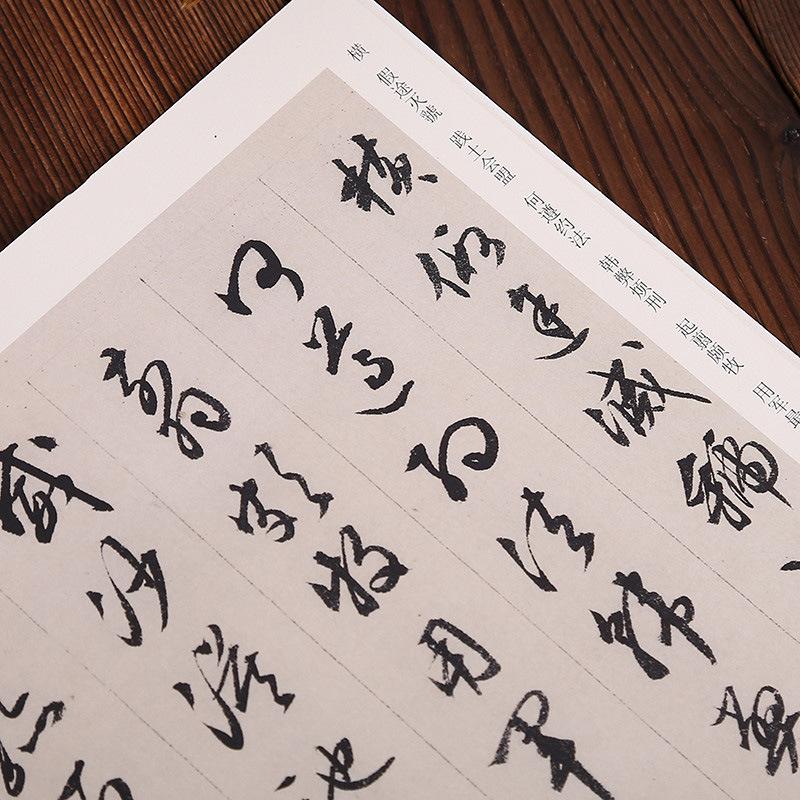 横 假途灭虢 践土会盟 何遵约法 韩弊烦刑 起翦颇牧 用军最
横假途滅虢
何遵約法韓弊
翦頗牧用軍
威沙漠馳